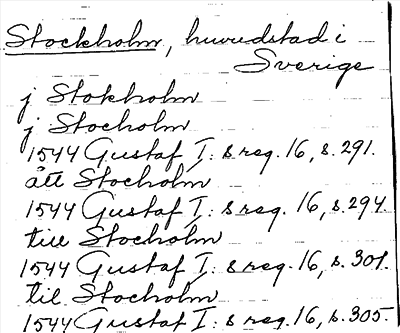 Stockholm, huvudstad i
Sverige
j Stokholm
j Stocholm
1544 Gustaf I: s reg. 16, s. 291.
átt Stocholm
1544 Gustaf I: s reg. 16, s. 294.
till Stocholm
1544 Gustaf I: s reg. 16, s. 301.
til Stocholm
1544 Gustaf I: s reg. 16, s. 305.